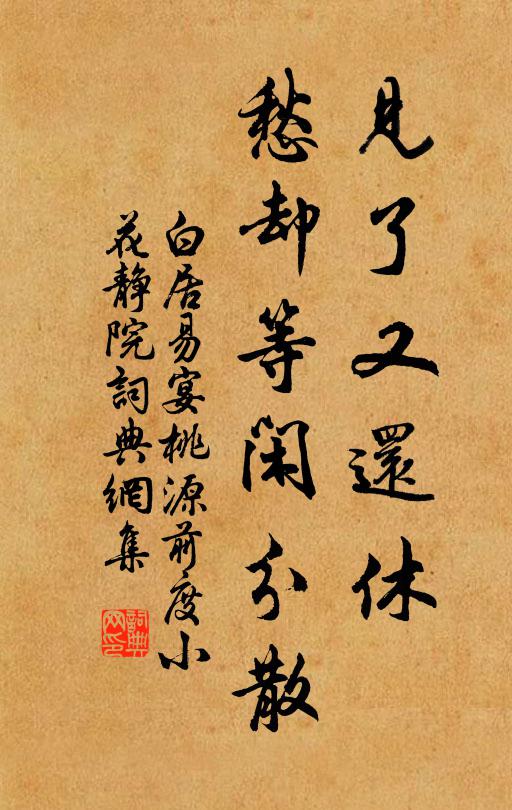 見了又還休
愁却等閑分散
白居易宴桃源前度小
花靜院詞典網集
詞典網印